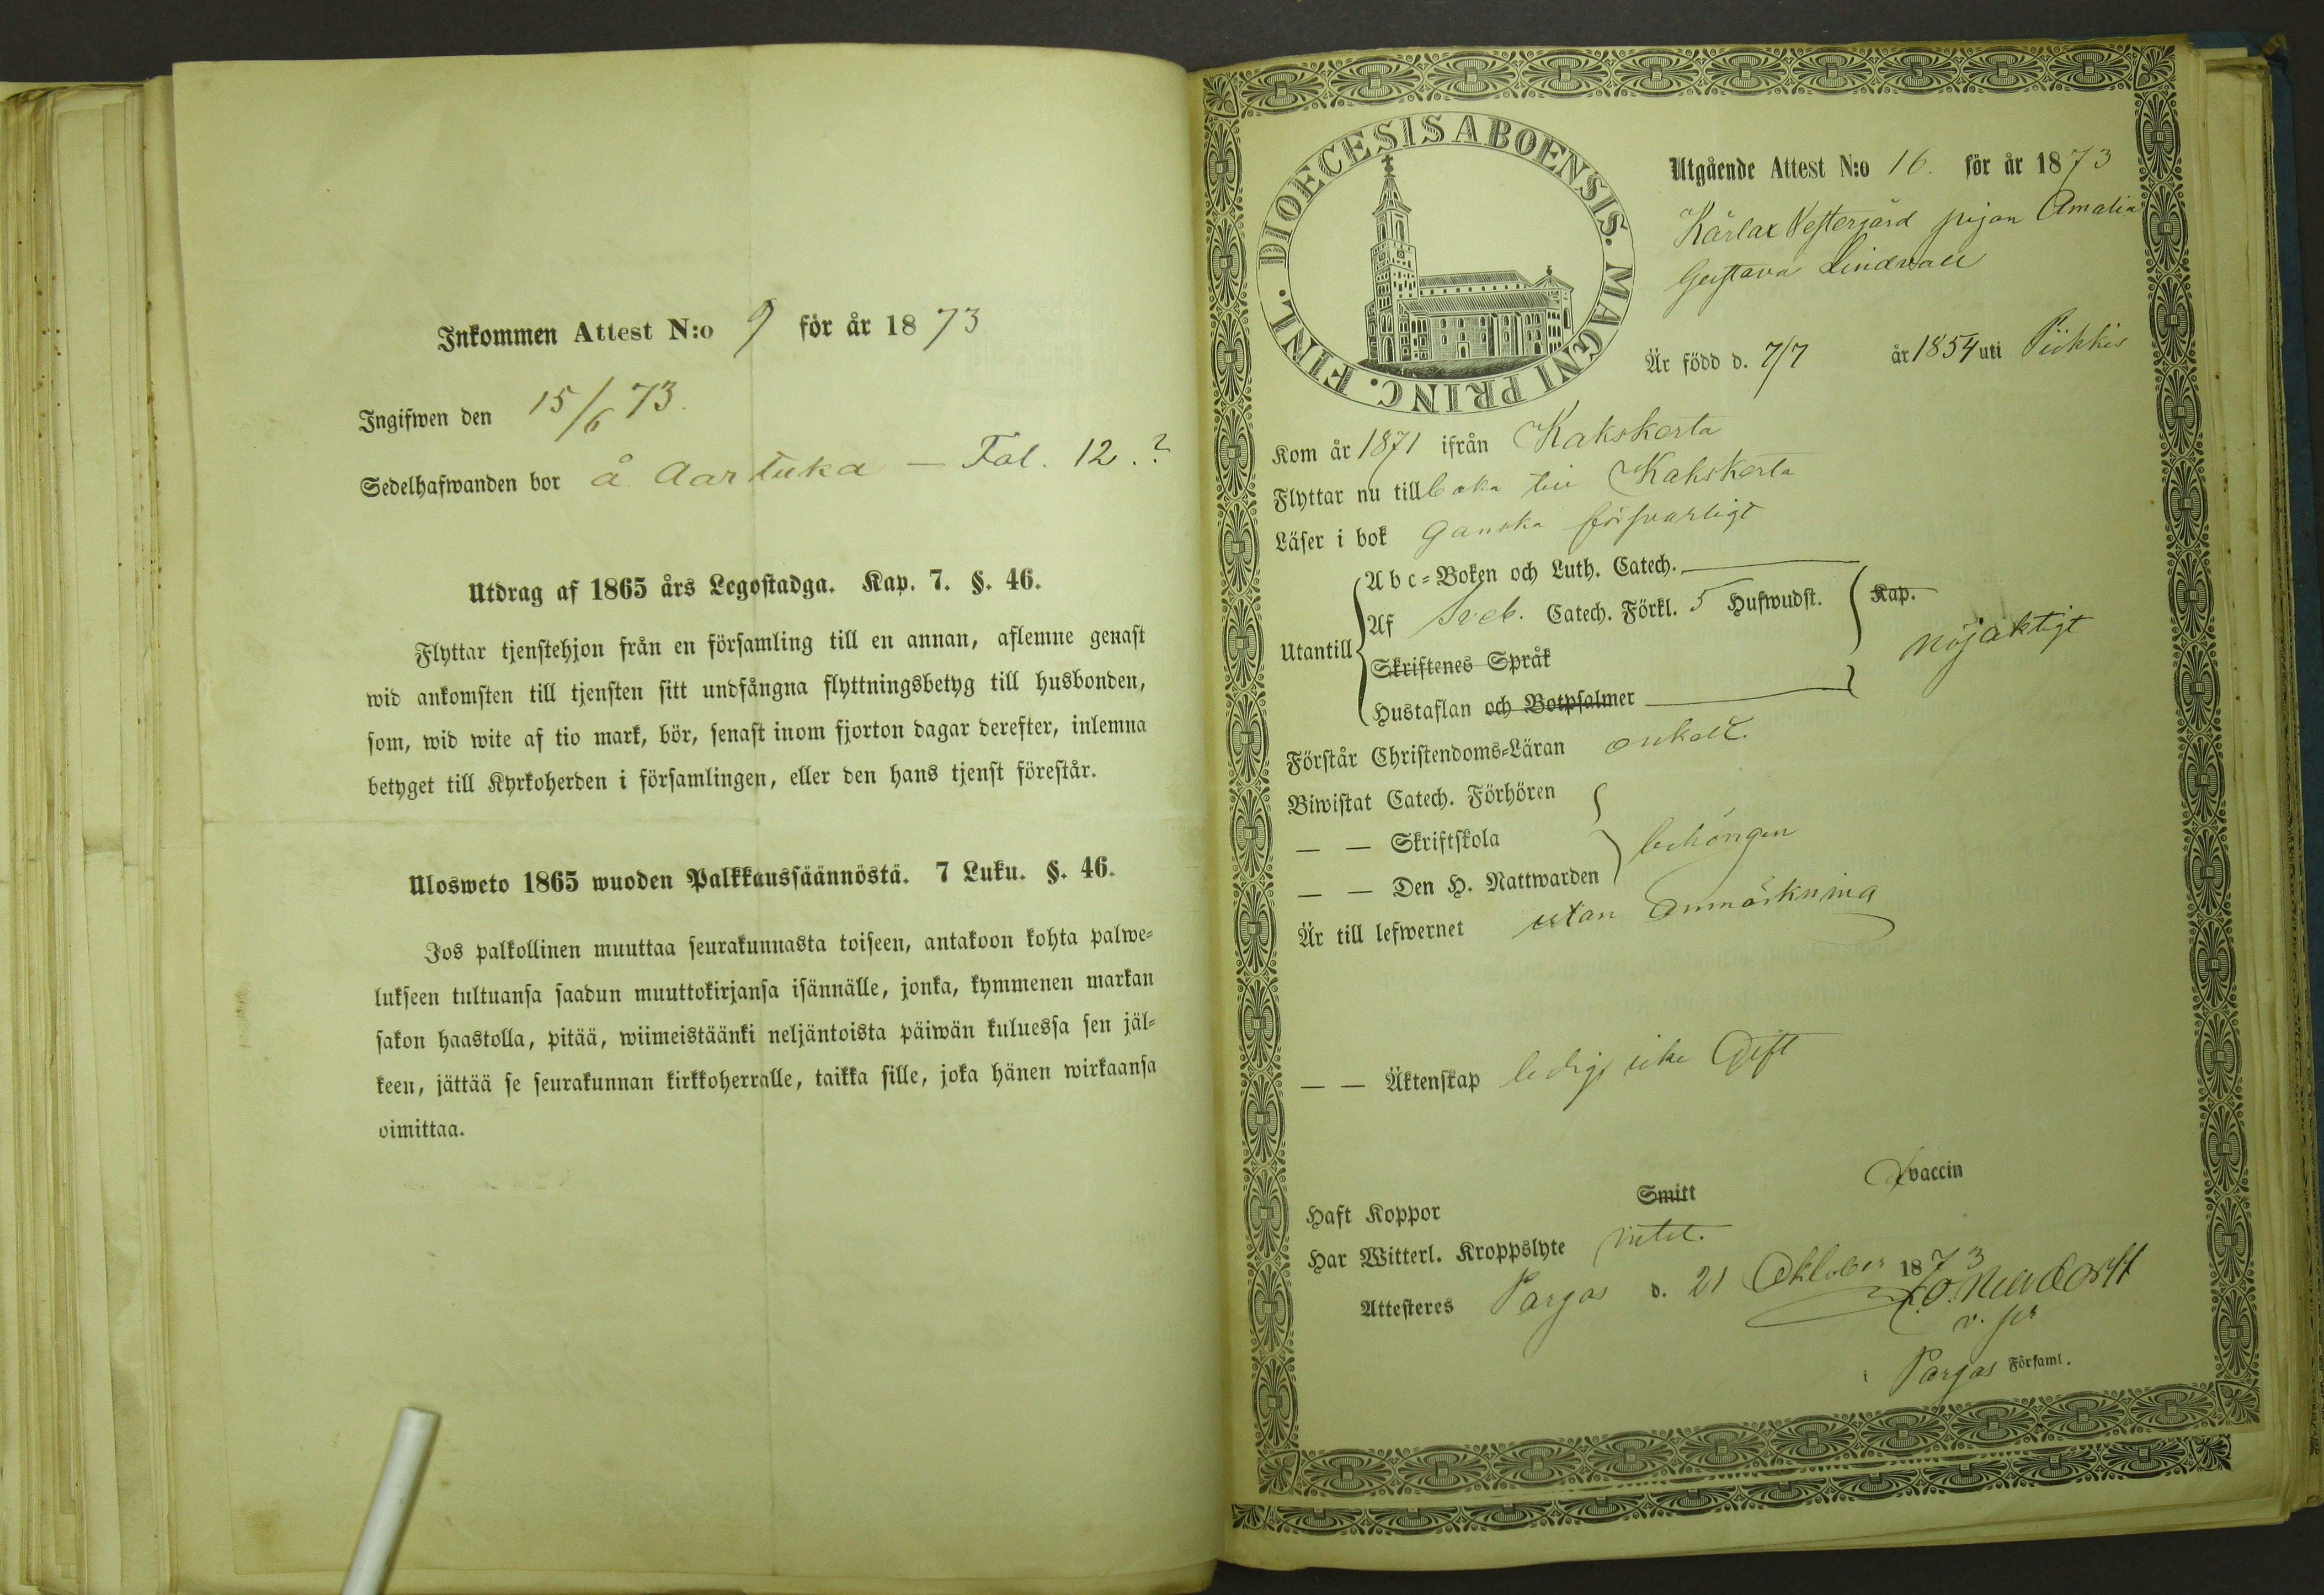 Inkommen Attest N:o 9 för år 1873
Ingifwen den 15/6 73.
Sedelhafwanden bor å Aartuka — Fol. 12.?
Utdrag af 1865 års Legostadga. Kap. 7. §. 46.
Flyttar tjenstehjon från en församling till en annan, aflemne genast
wid ankomsten till tjensten sitt undfångna flyttningsbetyg till husbonden,
som, wid wite af tio mark, bör, senast inom fjorton dagar derefter, inlemna
betyget till Kyrkoherden i församlingen, eller den hans tjenst förestår.
Ulosweto 1865 wuoden Palkkaussäännöstä. 7 Luku. §. 46.
Jos palkollinen muuttaa seurakunnasta toiseen, antakoon kohta palwe=
lukseen tultuansa saadun muuttokirjansa isännälle, jonka, kymmenen markan
sakon haastolla, pitää, wiimeistäänki neljäntoista päiwän kuluessa sen jäl=
keen, jättää se seurakunnan kirkkoherralle, taikka sille, joka hänen wirkaansa
oimittaa.
DIOECESIS ABOENSIS. MAGNI PRINC. FINL.
Utgående Attest N:o 16. för år 1873
Kärlax Vestergård pigan Amalia
Gustava Lindvall
Är född d. 7/7 år 1854 uti Piikkis
Kom år 1871 ifrån Kakskerta
Flyttar nu tillbaka till Kakskerta
Läser i bok ganska försvarligt
Utantill
Abc=Boken och Luth. Catech.
Af Sveb. Catech. Förkl. 5 Hufwudst. Kap.
Skriftenes Språk
nöjaktigt
Hustaflan och Botpsalmer
Förstår Christendoms=Läran enkelt.
Biwistat Catech. Förhören
— — Skriftskola
behörigen
— — Den H. Nattwarden
Är till lefwernet utan Anmärkning
— — Äktenskap ledig icke Gift
Haft Koppor Smitt vaccin
Har Witterl. Kroppslyte intet.
Attesteres Pargas d. 21 Oktober 1873
v. pr
Pargas Församl.